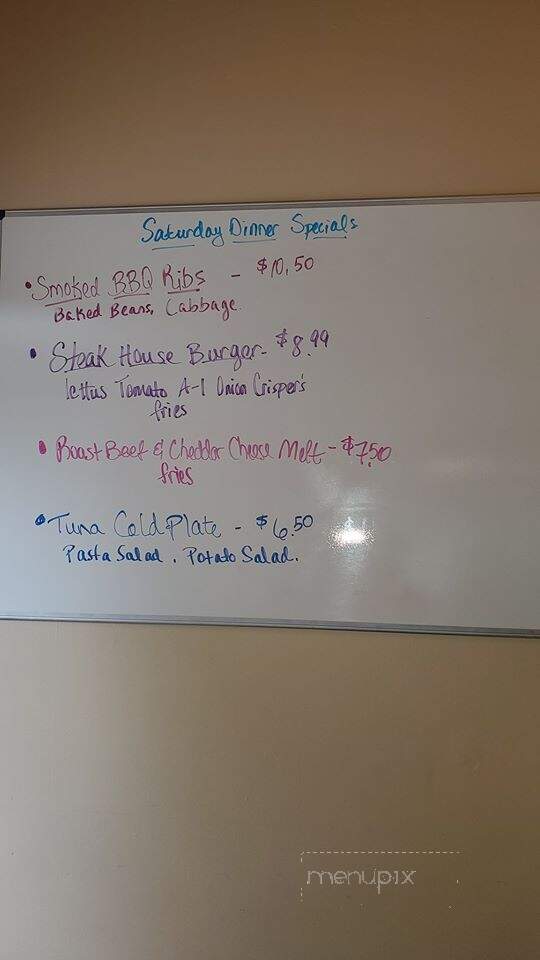 Saturday Dinner Specials
• Smoked BBQ Ribs - $10.50
Baked Beans, Cabbage
• Steak House Burger - $8.99
lettus Tomato A-1 Onion Crisper's
fries
• Roast Beef & Cheddar Cheese Melt - $7.50
fries
• Tuna Cold Plate - $6.50
Pasta Salad, Potato Salad.
menupix